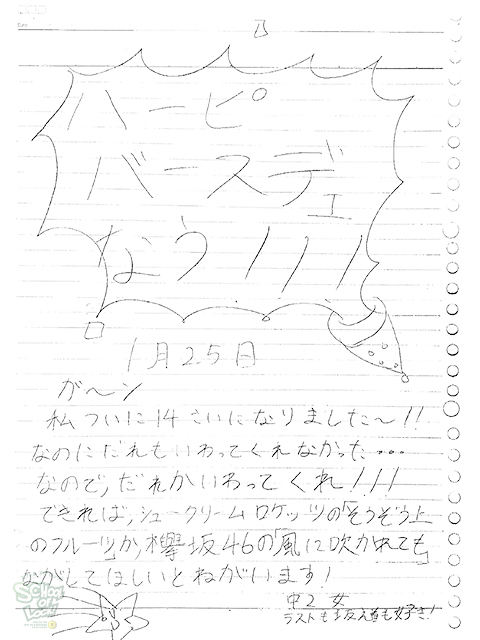 ハーピ
バースデェ
なう!!!
1月25日
が〜ン
私ついに14さいになりました〜!!
なのにだれもいわってくれなかった…
なので、だれかいわってくれ!!!
できれば、シュークリームロケッツの「そうぞう上
のフルーツ」か、欅坂46の「風に吹かれても」
ながしてほしいとねがいます!
中2 女